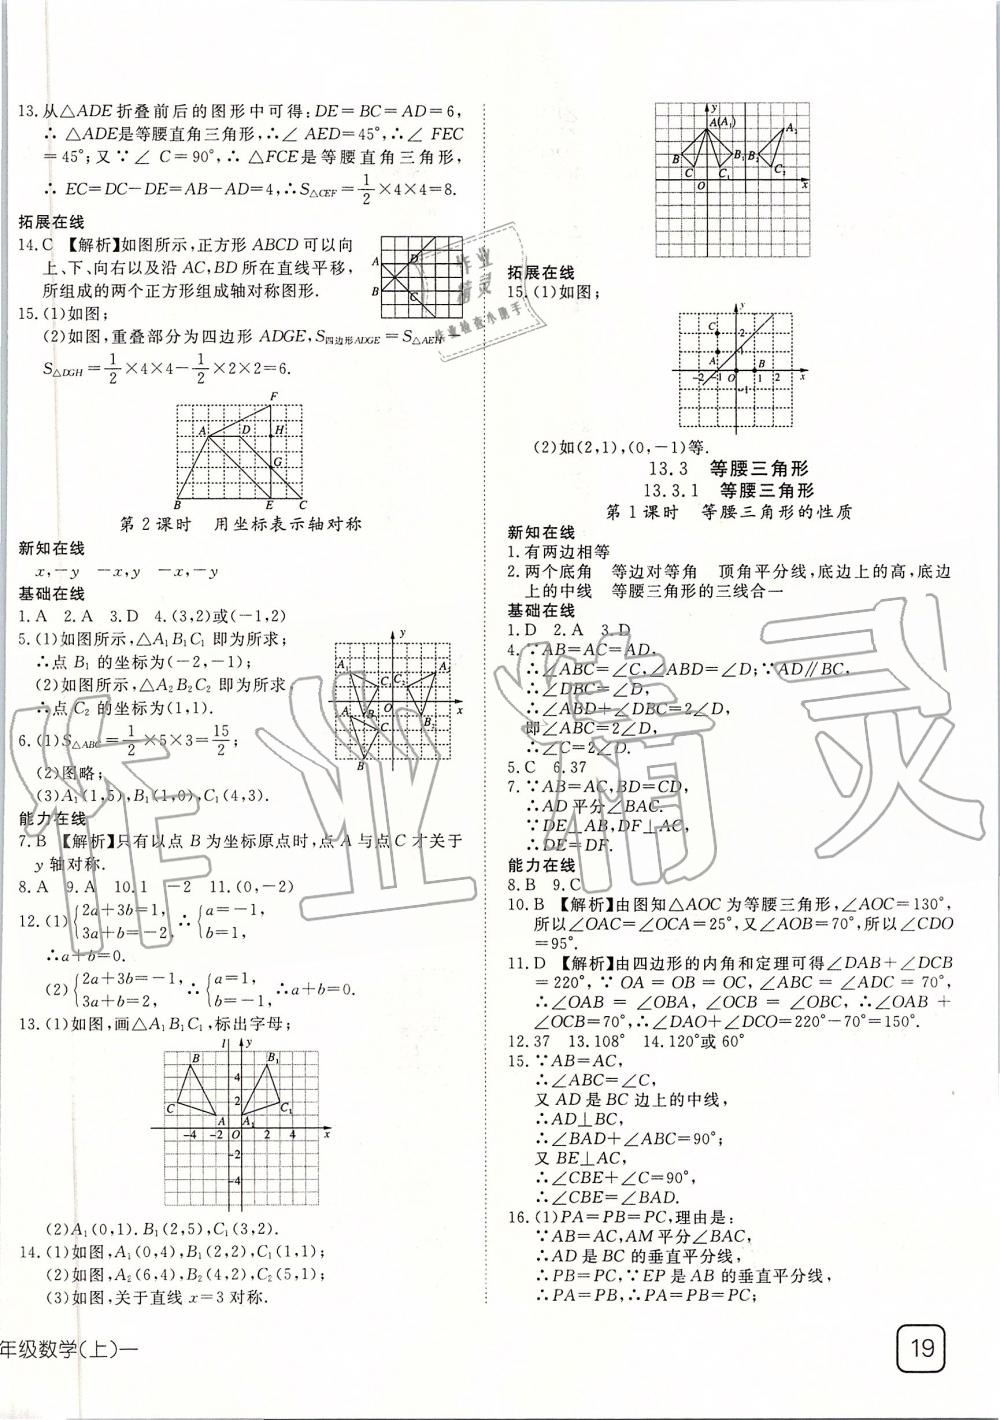 13.从△ADE折叠前后的图形中可得:DE=BC=AD=6,
∴△ADE是等腰直角三角形,∴∠AED=45°,∴∠FEC
=45°;又∵∠C=90°,∴△FCE是等腰直角三角形,
∴EC=DC-DE=AB-AD=4,∴S△CEF=1/2×4×4=8.
拓展在线
14.C 【解析】如图所示,正方形ABCD可以向
上、下、向右以及沿AC,BD所在直线平移,
所组成的两个正方形组成轴对称图形.
A D
B C
15.(1)如图;
(2)如图,重叠部分为四边形ADGE,S四边形ADGE=S△AEH-
S△DGH=1/2×4×4-1/2×2×2=6.
F
A D H
G
B E C
第2课时 用坐标表示轴对称
新知在线
x,-y -x,y -x,-y
基础在线
1.A 2.A 3.D 4.(3,2)或(-1,2)
5.(1)如图所示,△A1B1C1即为所求;
∴点B1的坐标为(-2,-1);
(2)如图所示,△A2B2C2即为所求,
∴点C2的坐标为(1,1).
6.(1)S△ABC=1/2×5×3=15/2;
(2)图略;
(3)A1(1,5),B1(1,0),C1(4,3).
能力在线
7.B 【解析】只有以点B为坐标原点时,点A与点C才关于
y轴对称.
8.A 9.A 10.1 -2 11.(0,-2)
12.(1){2a+3b=1, 3a+b=-2, ∴{a=-1, b=1,
∴a+b=0.
(2){2a+3b=-1, 3a+b=2, ∴{a=1, b=-1, ∴a+b=0.
13.(1)如图,画△A1B1C1,标出字母;
l y
B B1
4
C 2 C1
A A1
-4 -2 O 2 4 x
-2
-4
(2)A1(0,1).B1(2,5),C1(3,2).
14.(1)如图,A1(0,4),B1(2,2),C1(1,1);
(2)如图,A2(6,4),B2(4,2),C2(5,1);
(3)如图,关于直线x=3对称.
年级数学(上)一
y
A(A1) A2
B B1 B2
C C1 C2
O x
拓展在线
15.(1)如图;
y
C 2
A 1
B
-2 -1 O 1 2 x
-1
(2)如(2,1),(0,-1)等.
13.3 等腰三角形
13.3.1 等腰三角形
第1课时 等腰三角形的性质
新知在线
1.有两边相等
2.两个底角 等边对等角 顶角平分线,底边上的高,底边
上的中线 等腰三角形的三线合一
基础在线
1.D 2.A 3.D
4.∵AB=AC=AD,
∴∠ABC=∠C,∠ABD=∠D;∵AD∥BC,
∴∠DBC=∠D,
∴∠ABD+∠DBC=2∠D,
即∠ABC=2∠D,
∴∠C=2∠D.
5.C 6.37
7.∵AB=AC,BD=CD,
∴AD平分∠BAC.
∵DE⊥AB,DF⊥AC,
∴DE=DF.
能力在线
8.B 9.C
10.B 【解析】由图知△AOC为等腰三角形,∠AOC=130°,
所以∠OAC=∠OCA=25°,又∠AOB=70°,所以∠CDO
=95°.
11.D 【解析】由四边形的内角和定理可得∠DAB+∠DCB
=220°,∵OA=OB=OC,∠ABC=∠ADC=70°,
∴∠OAB=∠OBA,∠OCB=∠OBC,∴∠OAB+
∠OCB=70°,∴∠DAO+∠DCO=220°-70°=150°.
12.37 13.108° 14.120°或60°
15.∵AB=AC,
∴∠ABC=∠C,
又AD是BC边上的中线,
∴AD⊥BC,
∴∠BAD+∠ABC=90°;
又BE⊥AC,
∴∠CBE+∠C=90°,
∴∠CBE=∠BAD.
16.(1)PA=PB=PC,理由是:
∵AB=AC,AM平分∠BAC,
∴AD是BC的垂直平分线,
∴PB=PC,∵EP是AB的垂直平分线,
∴PA=PB,∴PA=PB=PC;
19
作业精灵
作业
精灵
作业检查小助手